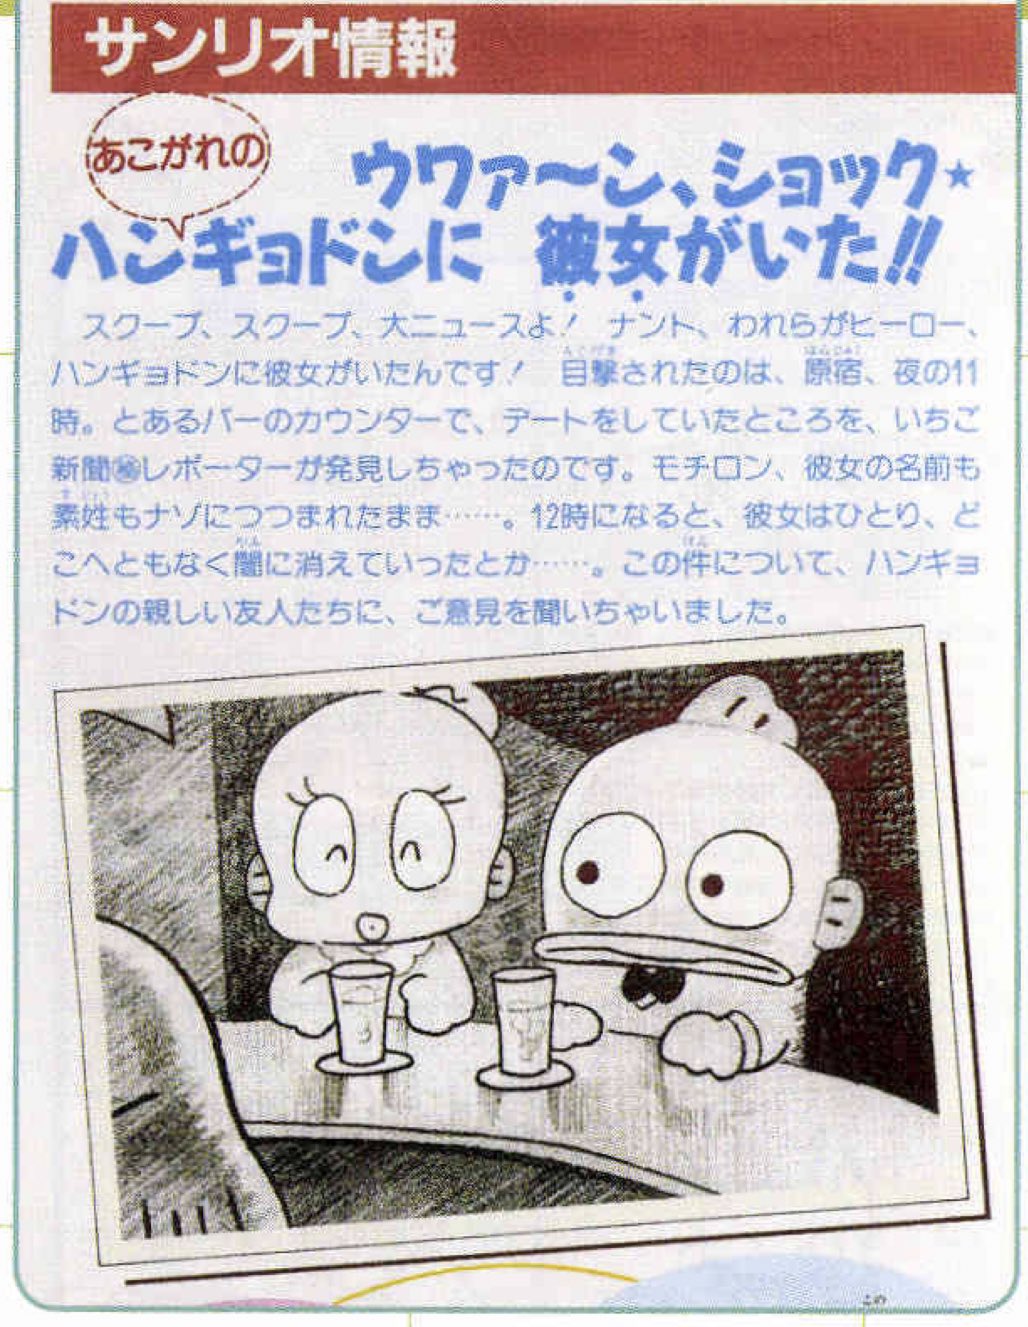 サンリオ情報
あこがれの
ウワァ〜ン、ショック★
ハンギョドンに 彼女がいた!!
スクープ、スクープ、大ニュースよ! ナント、われらがヒーロー、
ハンギョドンに彼女がいたんです! 目撃されたのは、原宿、夜の11
時。とあるバーのカウンターで、デートをしていたところを、いちご
新聞㊙レポーターが発見しちゃったのです。モチロン、彼女の名前も
素姓もナゾにつつまれたまま……。12時になると、彼女はひとり、ど
こへともなく闇に消えていったとか……。この件について、ハンギョ
ドンの親しい友人たちに、ご意見を聞いちゃいました。
この